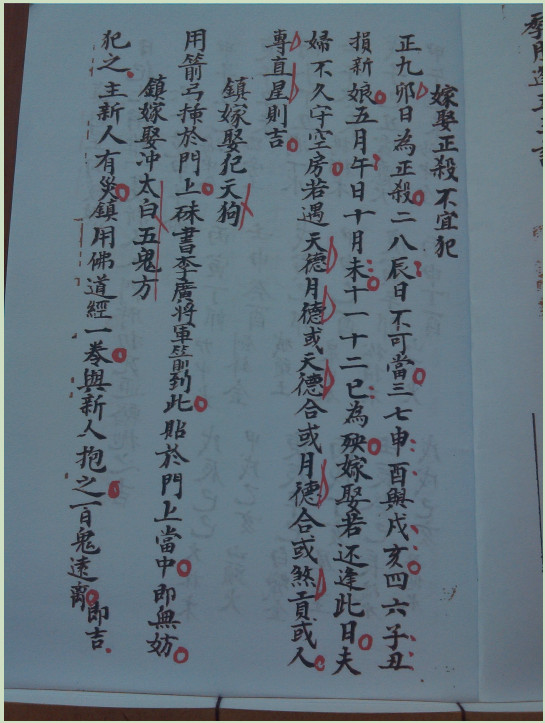 嫁娶正殺不宜犯
正九卯日為正殺二八辰日不可當三七申酉與戌亥四六子丑
損新娘五月午日十月未十一十二巳為殃嫁娶若还逢此日夫
婦不久守空房若遇天德月德或天德合或月德合或煞貢或人
專直星則吉
鎮嫁娶犯天狗
用箭弓掛於門上硃書李廣將軍箭到此貼於門上當中即無妨
鎮嫁娶冲太白五鬼方
犯之主新人有災鎮用佛道經一卷與新人抱之百鬼遠離即吉